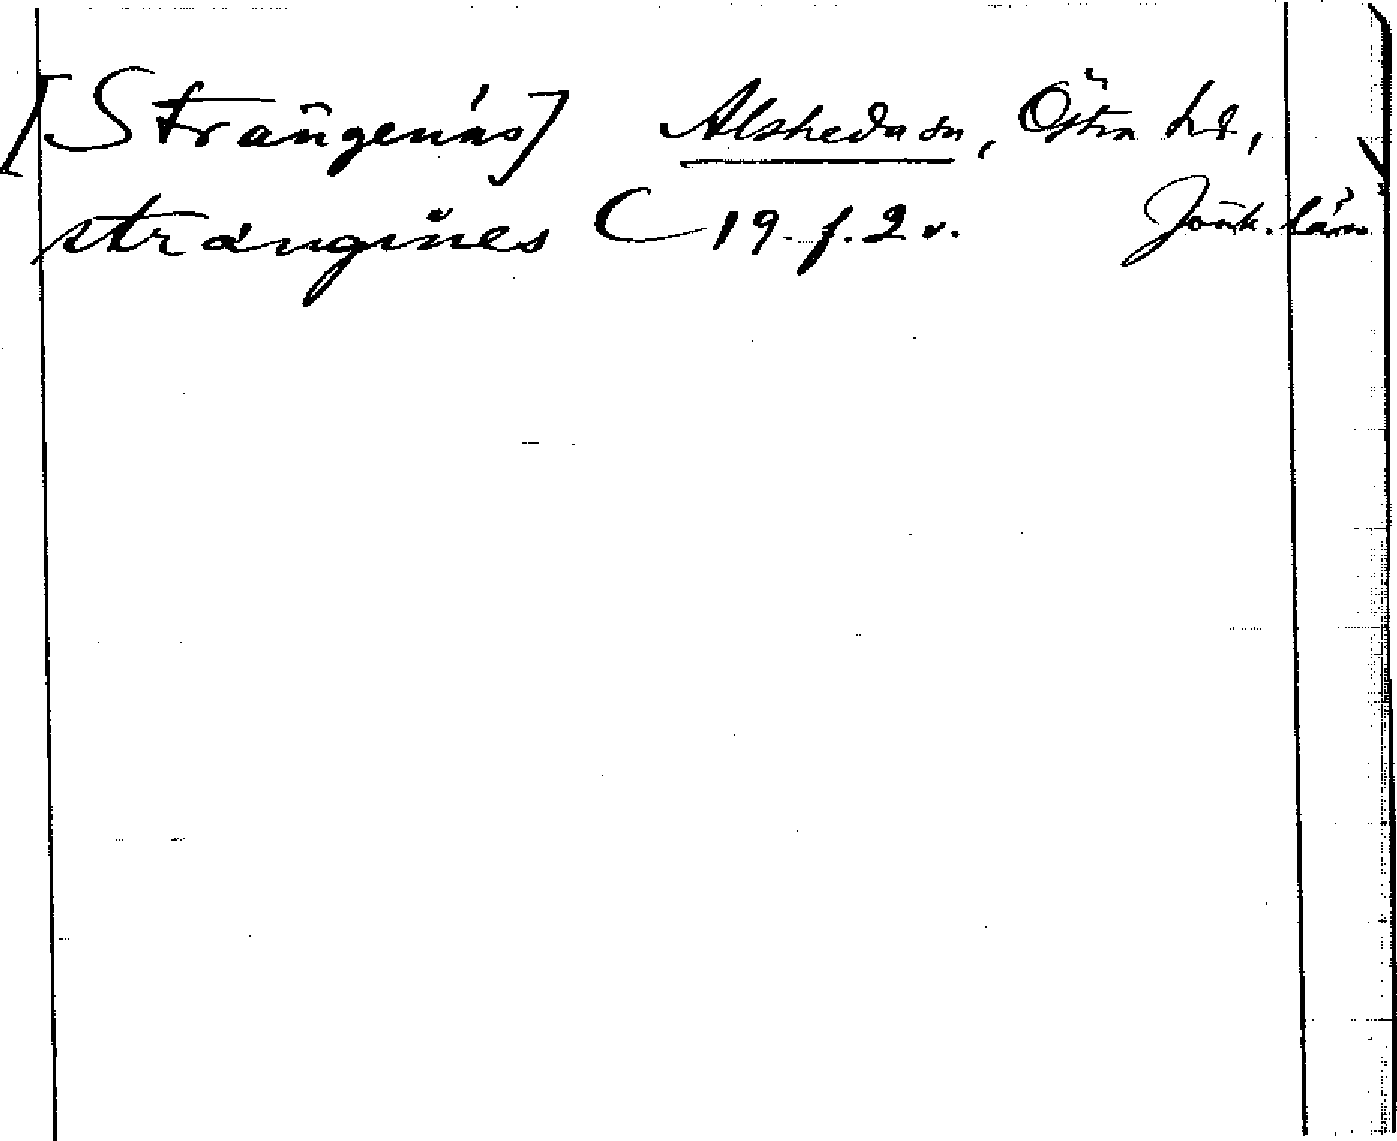 [Strängenäs] Alsheda sn, Östra hd,
strangines C 19 f. 2 v. Jönk. län